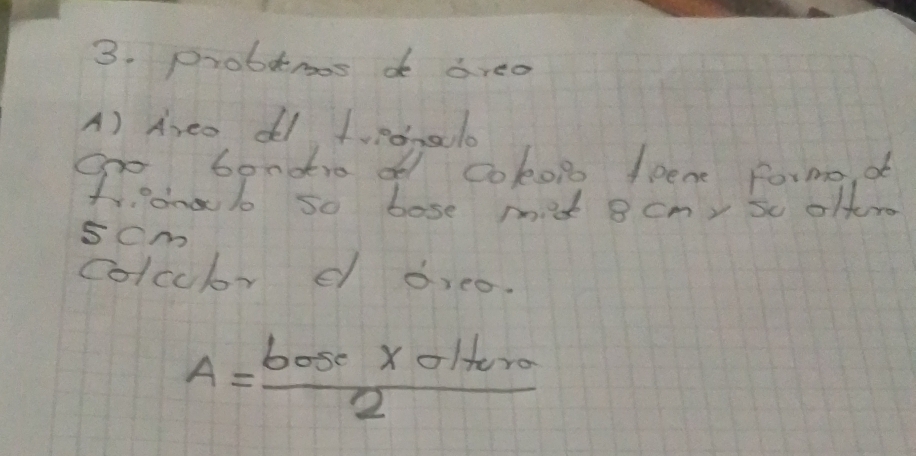 3. problemas de área
A) Área del triángulo
Una bandera del colegio tiene forma de
triángulo su base mide 8 cm y su altura
5 cm
Calcular el área.
A = base x altura
2